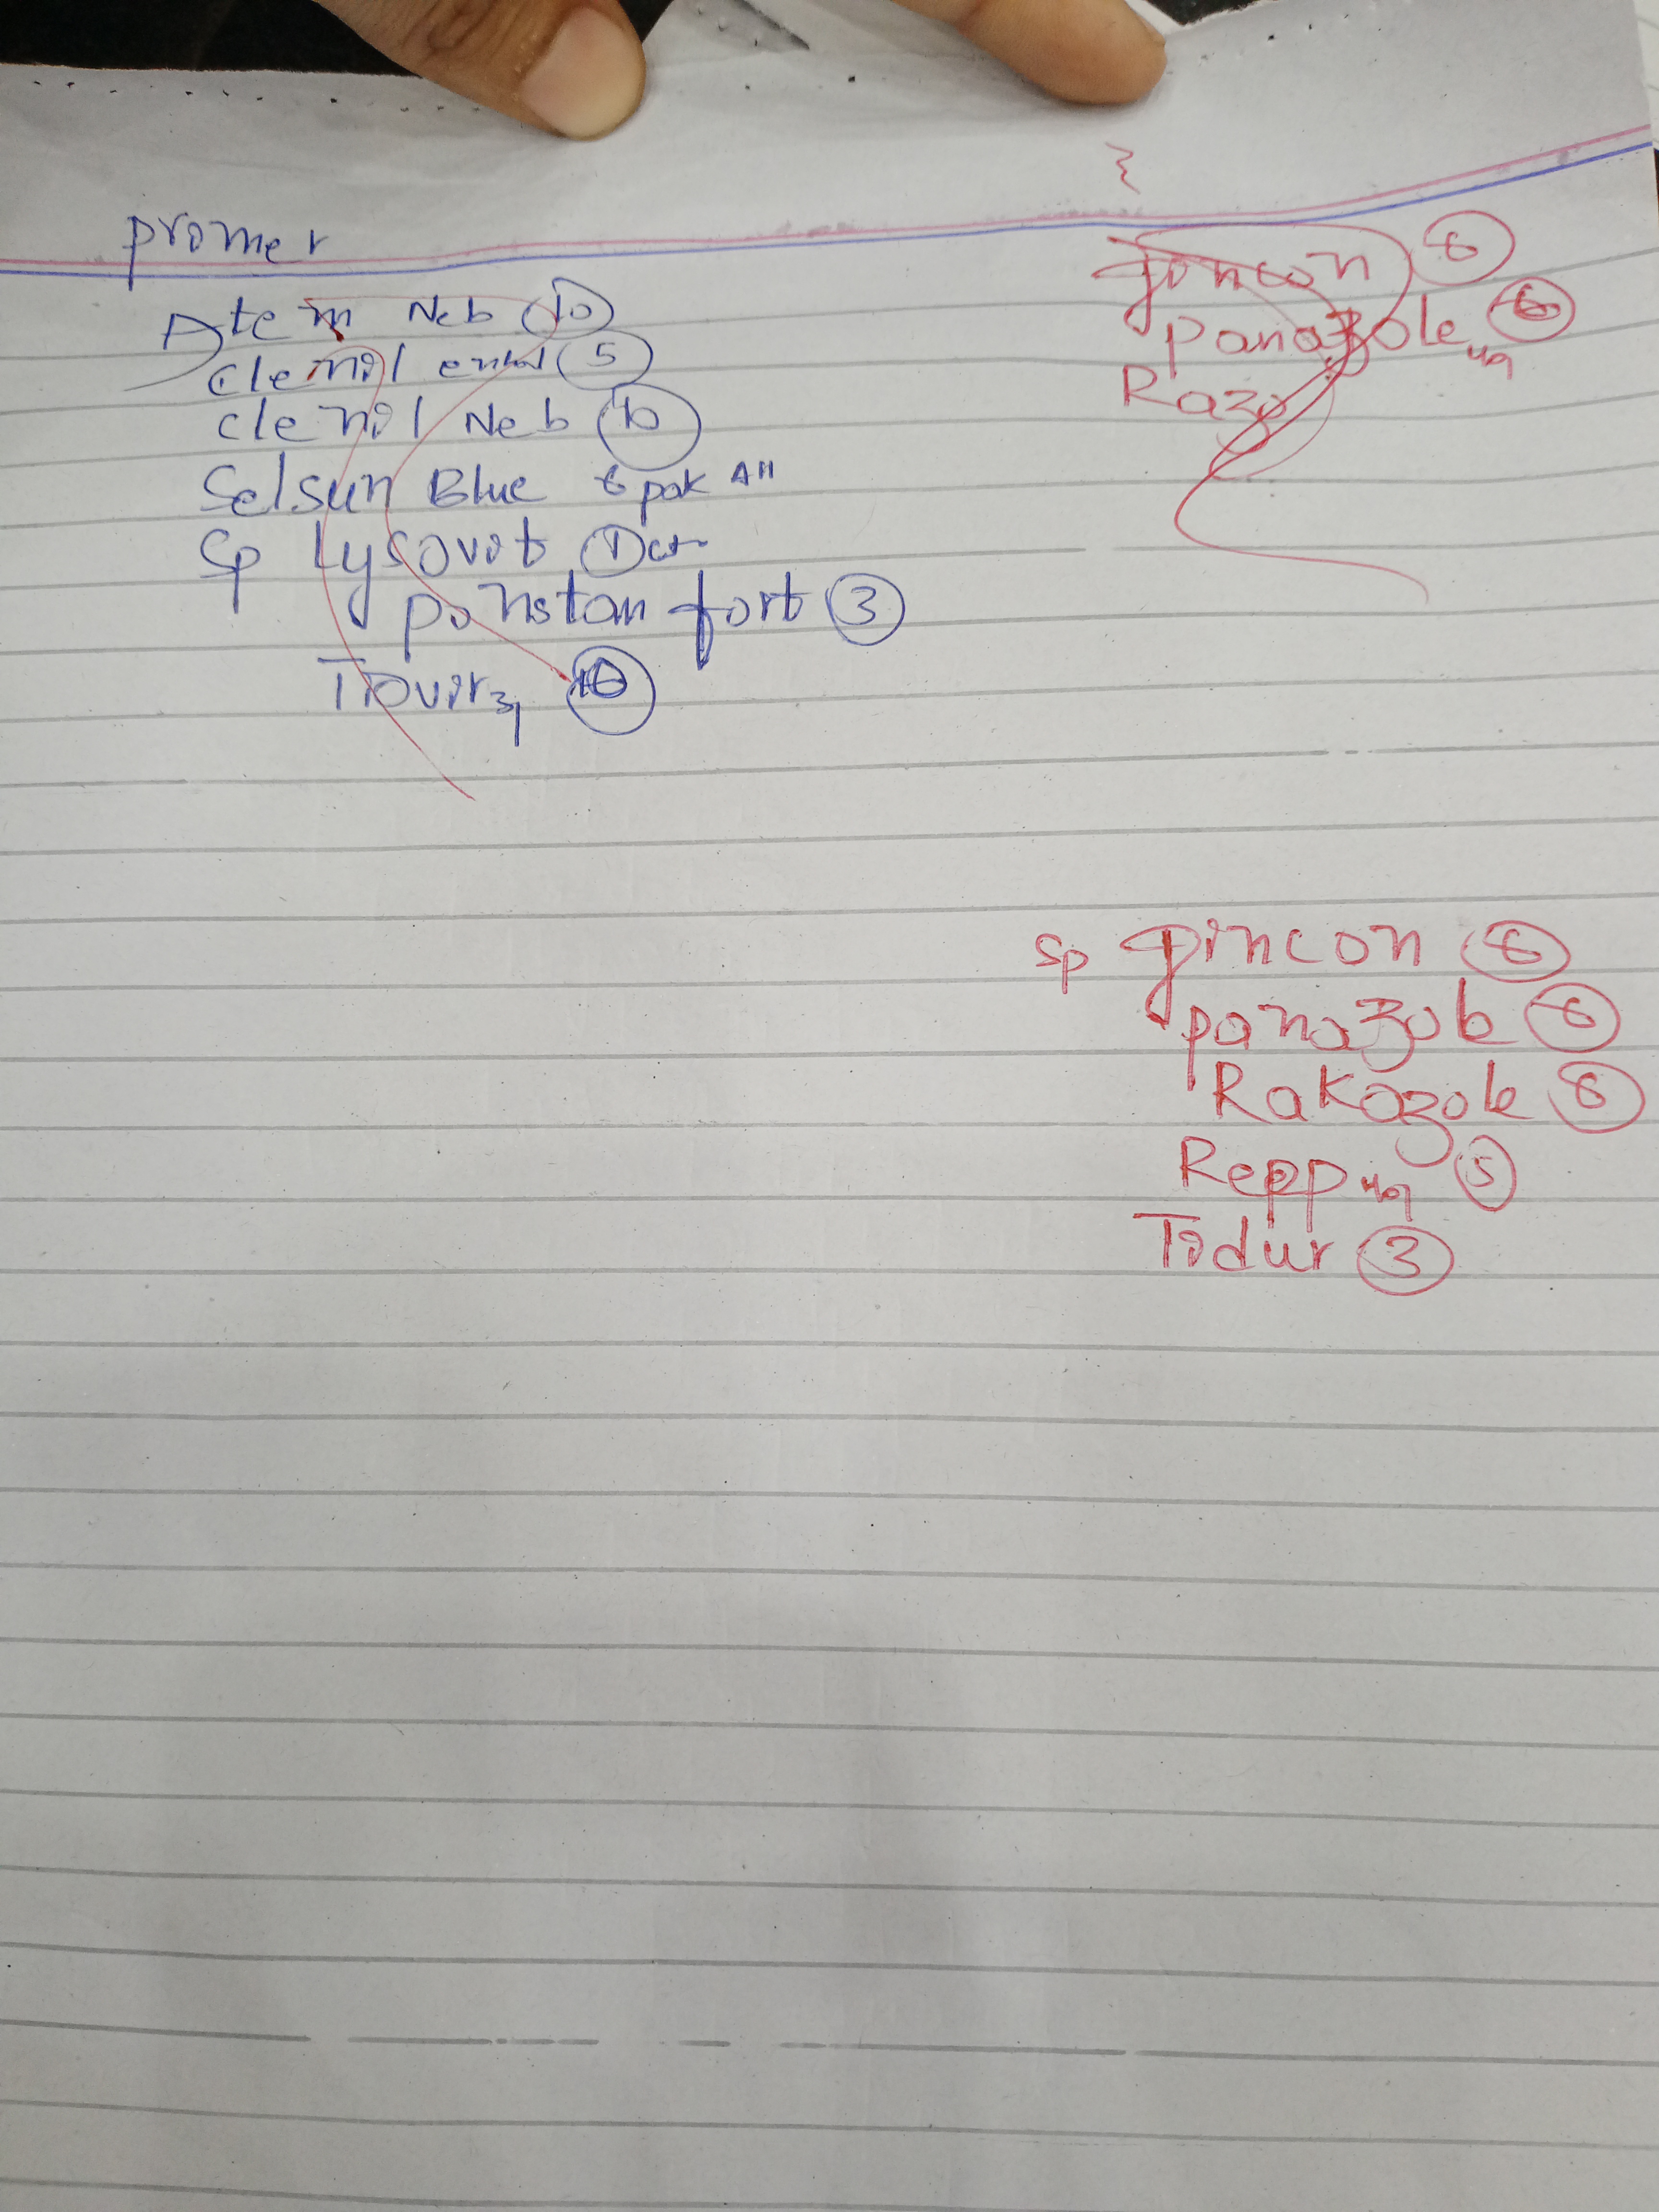 promer
Atem Neb 10
clenil 5
clenil Neb 10
Selsun Blue 6 pak All
Sp Lysovit 1 Ctn
ponstan fort 3
10
Jincon 6
panazole 40 6
Razo
Sp Jincon 6
panazole 6
Rakazole 6
Repp 40 5
Tidur 3